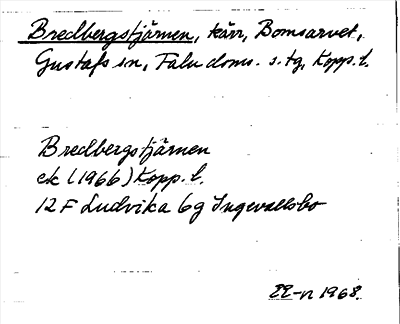 Bredbergstjärnen, kärr, Bomsarvet,
Gustafs sn, Falu doms. s. tg, Kopp. l.
Bredbergstjärnen
ek (1966) Kopp. l.
12 F Ludvika 6g Ingevallsbo
EE-n 1968.